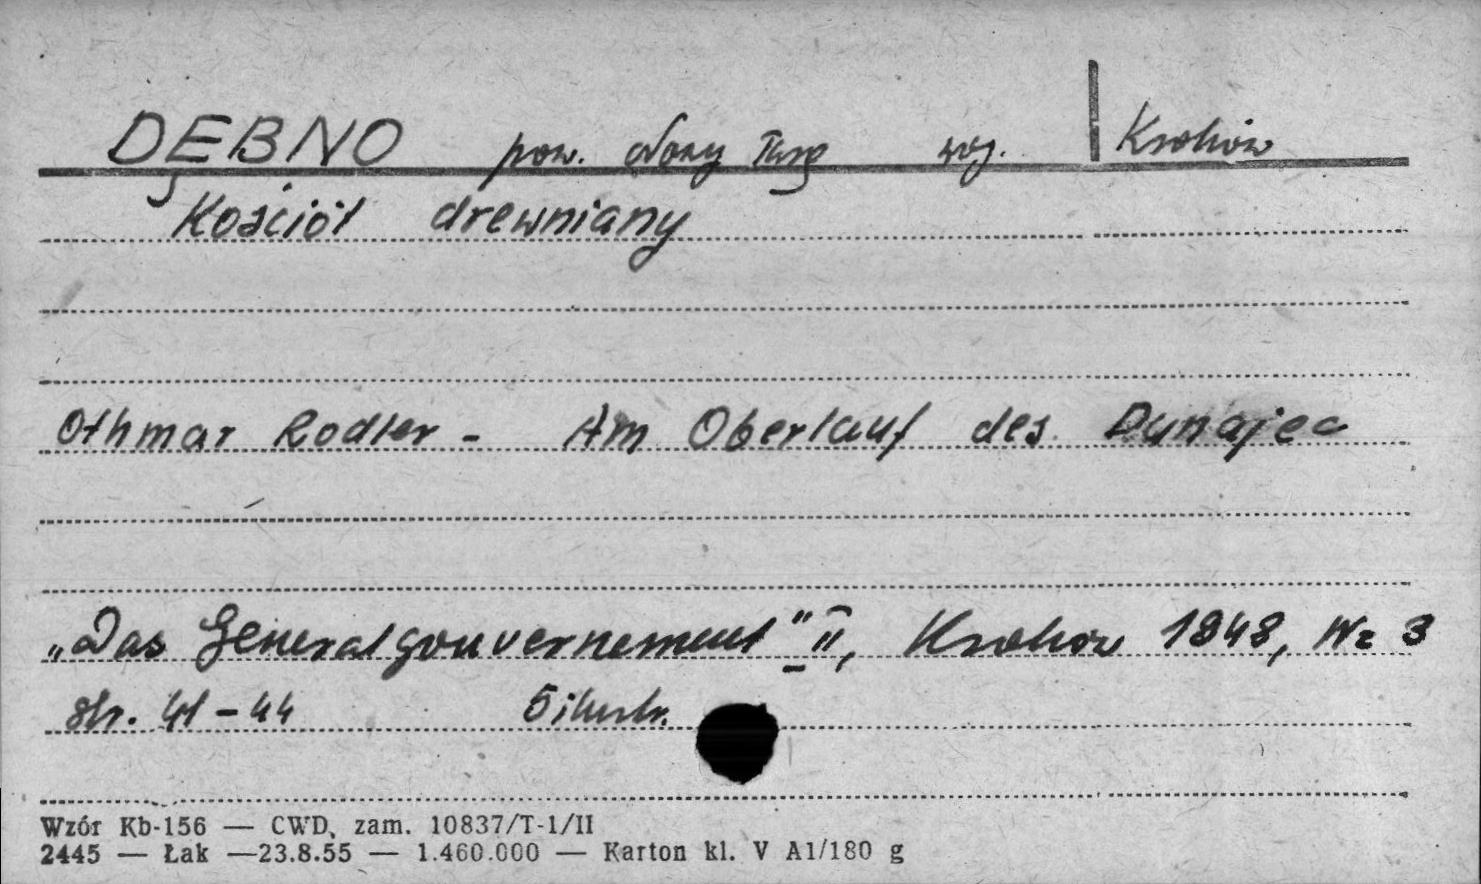 DĘBNO pow. Nowy Targ woj. Kraków
Kościół drewniany
Othmar Rodler - Am Oberlauf des Dunajec
„Das Generalgouvernement" II, Kraków 1943, Nr 3
str. 41-44 5 ilustr.
Wzór Kb-156 — CWD, zam. 10837/T-1/II
2445 — Łak —23.8.55 — 1.460.000 — Karton kl. V A1/180 g